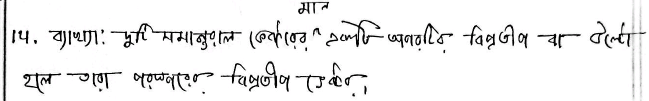 মান
14. ব্যাখ্যা: দুটি সমান্তরাল ভেক্টরের একটি অপরটির বিপ্রতীপ বা উল্টো
হলে তারা পরস্পরের বিপ্রতীপ ভেক্টর।